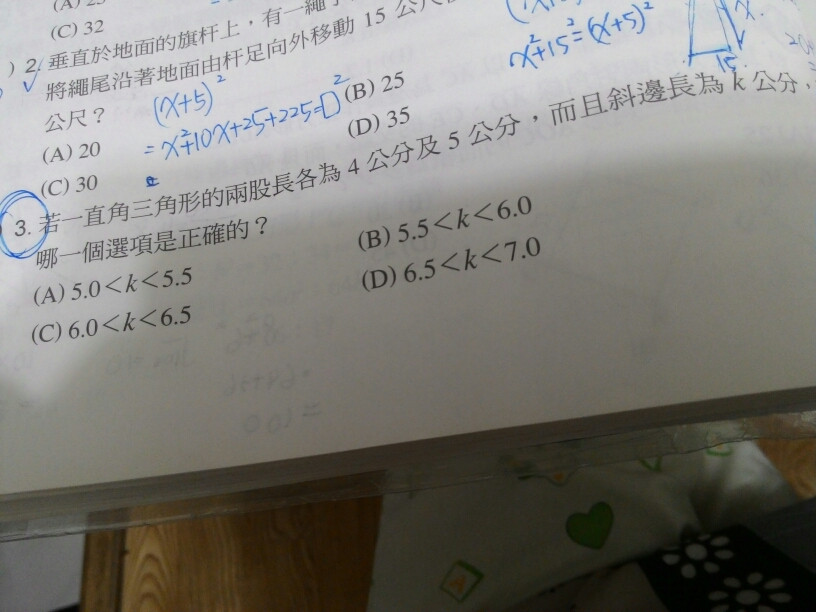 (C) 32
2. 垂直於地面的旗杆上，有一繩子
將繩尾沿著地面由杆足向外移動 15 公尺
公尺？
(x+5)²
x²+15²=(x+5)²
15
(A) 20
=x²+10x+25+225=□²
(B) 25
(C) 30
(D) 35
3. 若一直角三角形的兩股長各為 4 公分及 5 公分，而且斜邊長為 k 公分，
哪一個選項是正確的？
(A) 5.0＜k＜5.5
(B) 5.5＜k＜6.0
(C) 6.0＜k＜6.5
(D) 6.5＜k＜7.0